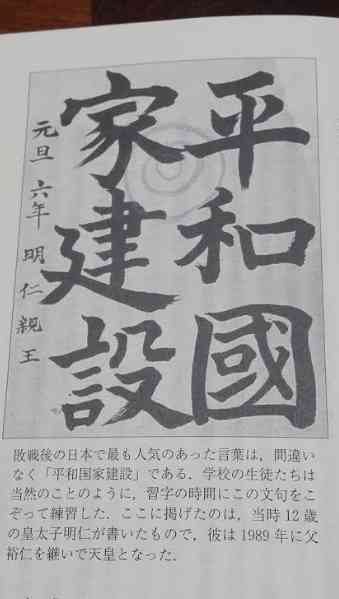 平和國
家建設
元旦 六年 明仁親王
敗戦後の日本で最も人気のあった言葉は，間違い
なく「平和国家建設」である．学校の生徒たちは
当然のことのように，習字の時間にこの文句をこ
ぞって練習した．ここに掲げたのは，当時 12 歳
の皇太子明仁が書いたもので，彼は 1989 年に父
裕仁を継いで天皇となった．